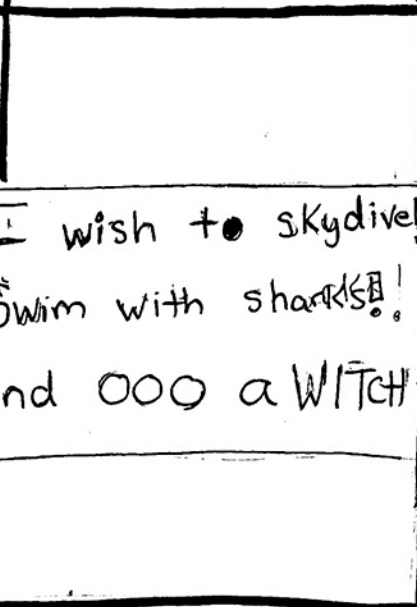 I wish to skydive!
Swim with sharks!!
nd OOO a WITCH